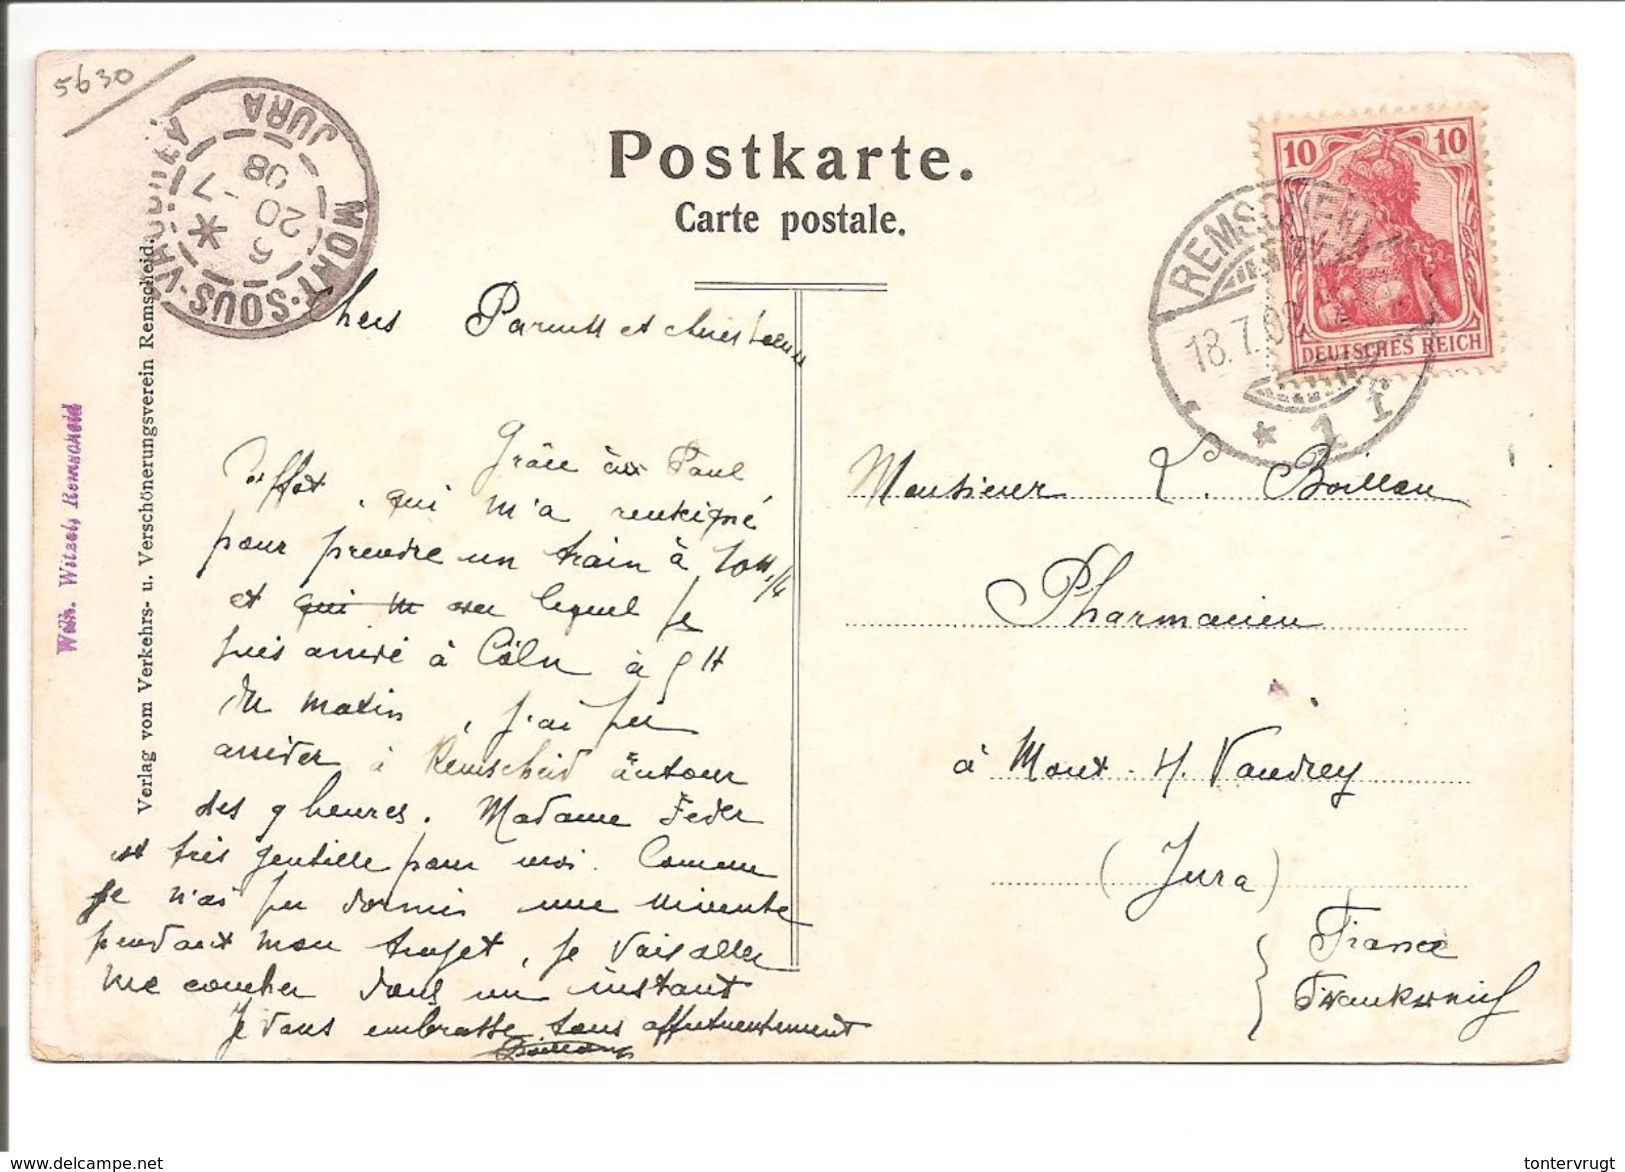 5630
MONT-SOUS-VAUDREY
JURA
6
20
7
08
Postkarte.
Carte postale.
10 10
DEUTSCHES REICH
REMSCHEID
18.7.08
* 1 f
Wilh. Witzels Remscheid
Verlag vom Verkehrs- u. Verschönerungsverein Remscheid.
Chers Parents et
Grâce à Paul
, qui m'a renseigné
pour prendre un train à 10H 1/4
et qui m avec lequel je
suis arrivé à Cöln à 5H
du matin, j'ai pu
arriver à Remscheid autour
des 9 heures. Madame Feder
est très gentille pour moi. Comme
je n'ai pu dormir une minute
pendant mon trajet, je vais aller
me coucher dans un instant
Je vous embrasse tous affectueusement
Boillon
Monsieur L. Boillon
Pharmacien
à Mont. s. Vaudrey
(Jura)
France
Frankreich
tontervrugt